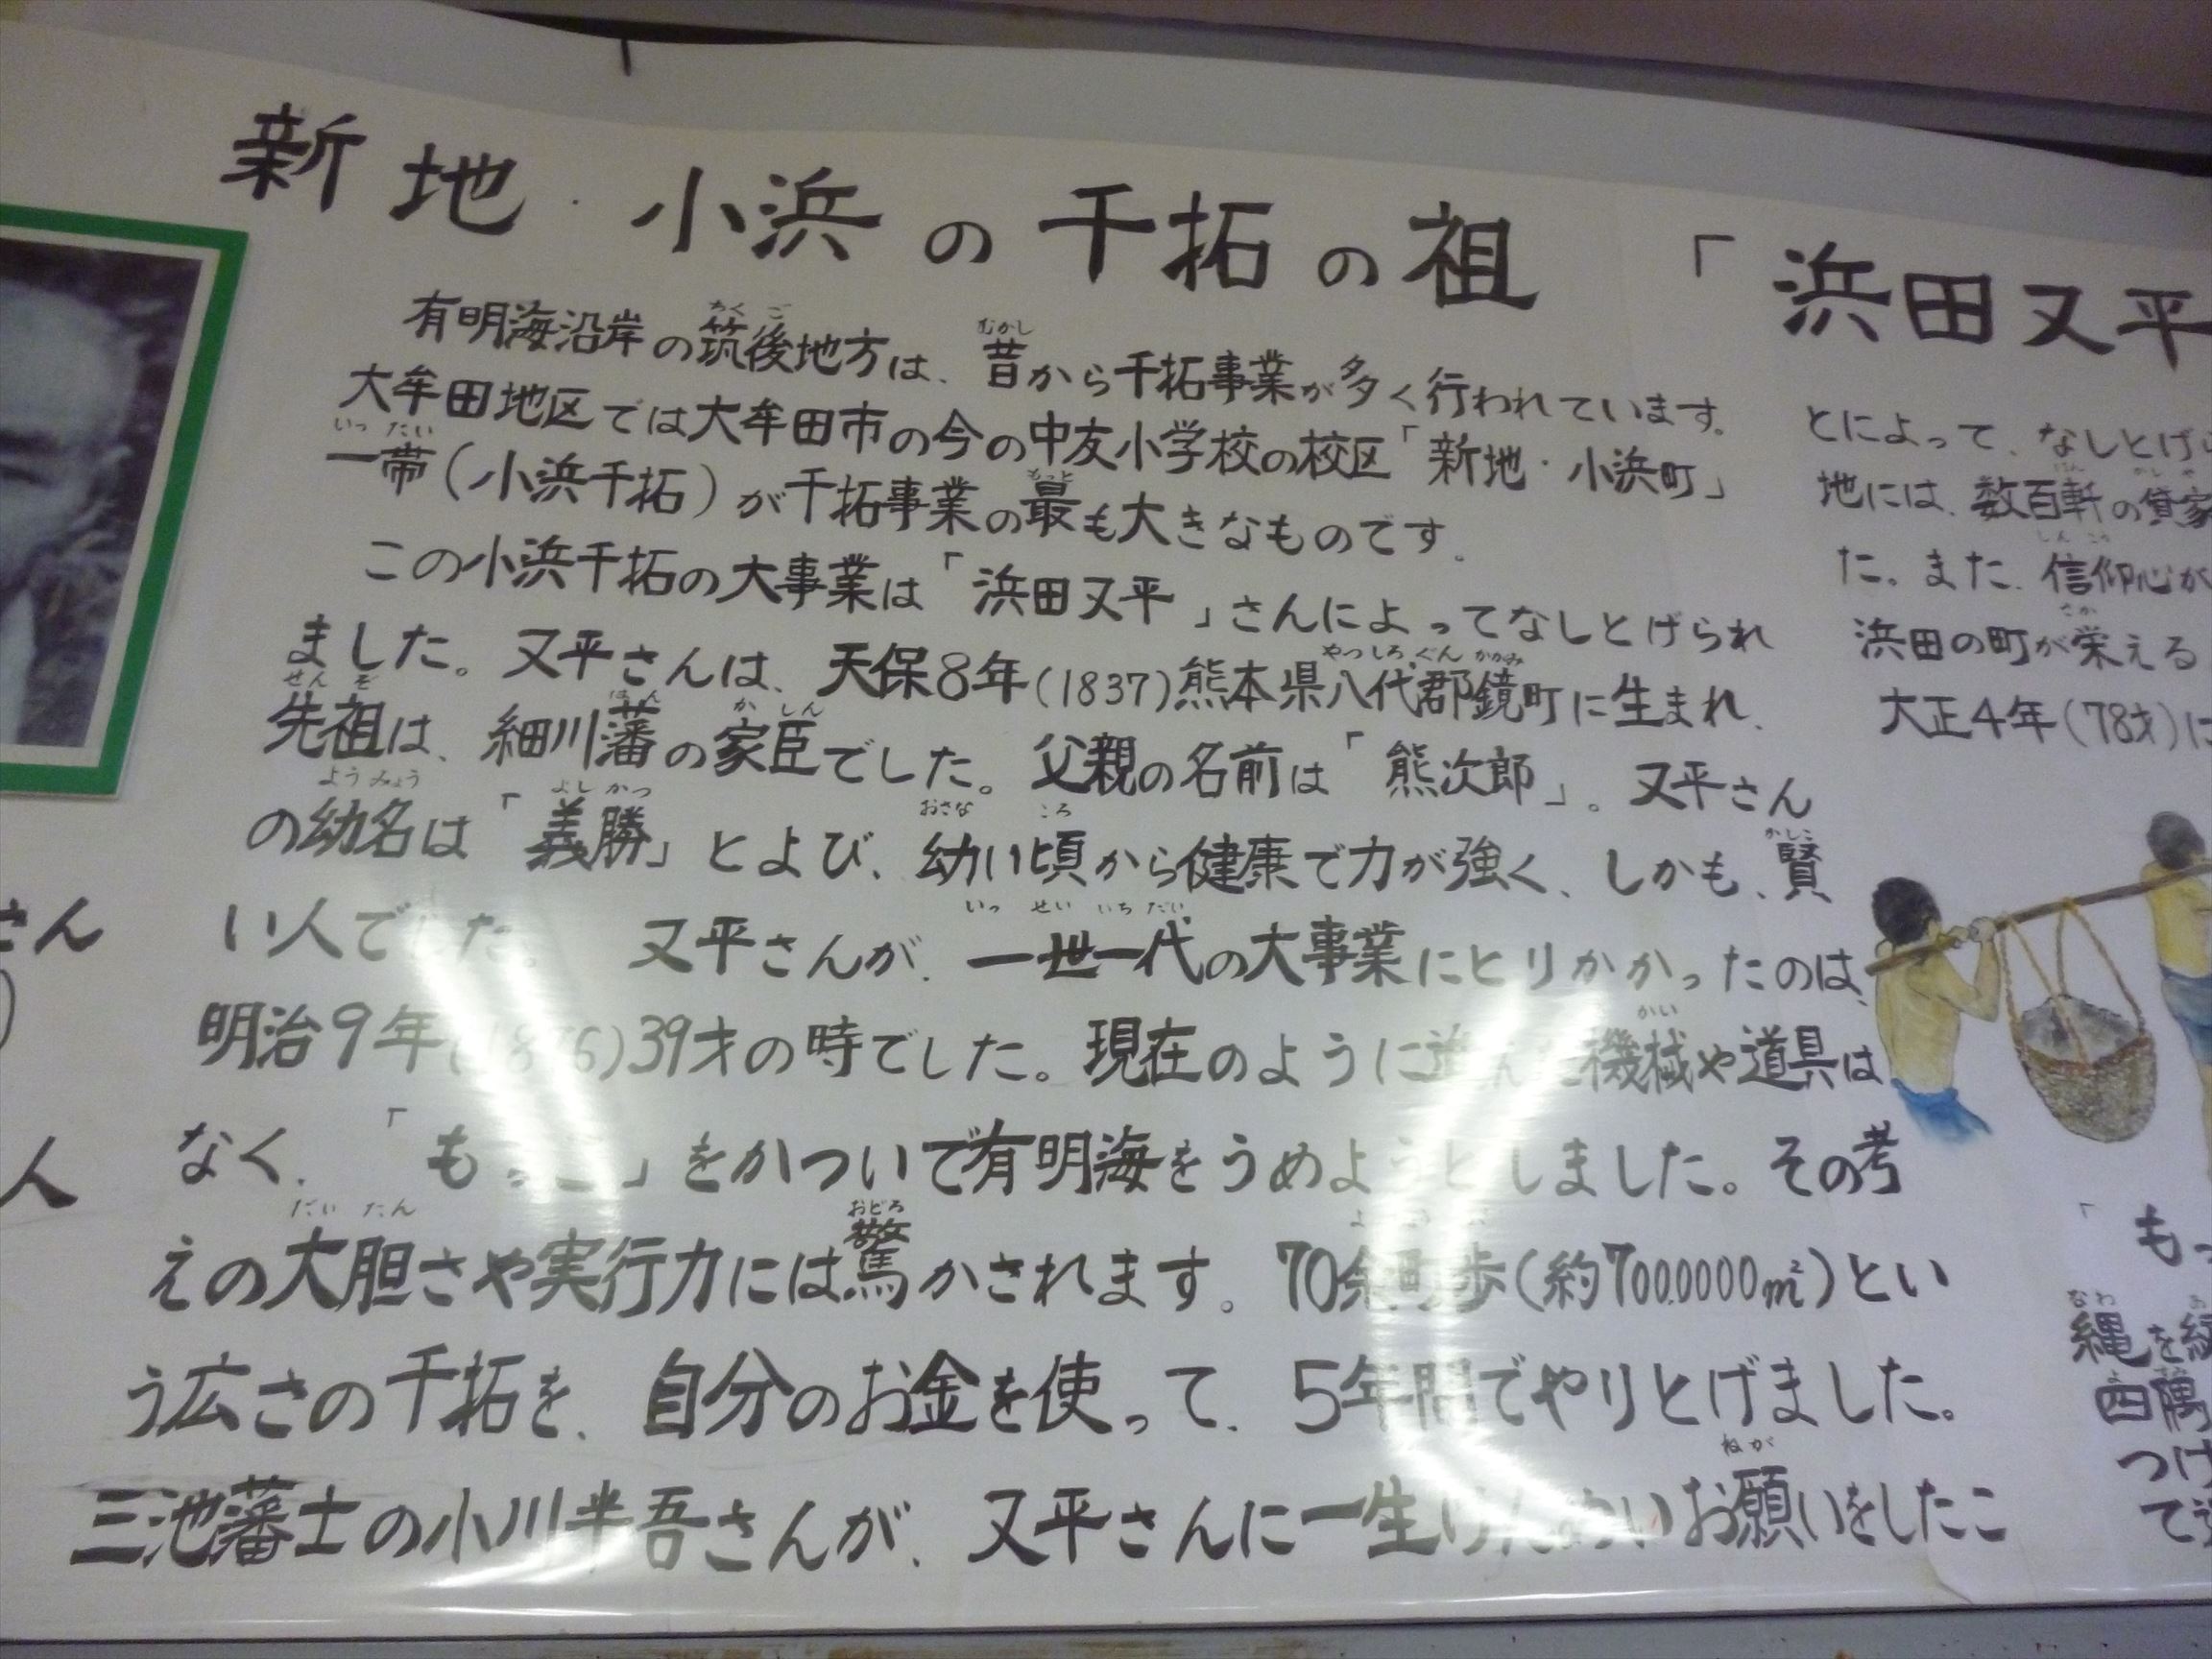 新地・小浜の干拓の祖 「浜田又平
有明海沿岸の筑後地方は、昔から干拓事業が多く行われています。
大牟田地区では大牟田市の今の中友小学校の校区「新地・小浜町」
一帯(小浜干拓)が干拓事業の最も大きなものです。
この小浜干拓の大事業は「浜田又平」さんによってなしとげられ
ました。又平さんは、天保8年(1837)熊本県八代郡鏡町に生まれ、
先祖は、細川藩の家臣でした。父親の名前は「熊次郎」。又平さん
の幼名は「義勝」とよび、幼い頃から健康で力が強く、しかも、賢
い人でした。 又平さんが、一世一代の大事業にとりかかったのは、
明治9年(1876)39才の時でした。現在のように進んだ機械や道具は
なく、「もっこ」をかついで有明海をうめようとしました。その考
えの大胆さや実行力には驚かされます。70余町歩(約700.0000㎡)とい
う広さの干拓を、自分のお金を使って、5年間でやりとげました。
三池藩士の小川半吾さんが、又平さんに一生けんめいお願いをしたこ
とによって、なしとげ
地には、数百軒の貸家
た。また、信仰心が
浜田の町が栄える
大正4年(78才)に
「もっ
縄を
四隅
つけ
て
さん
人